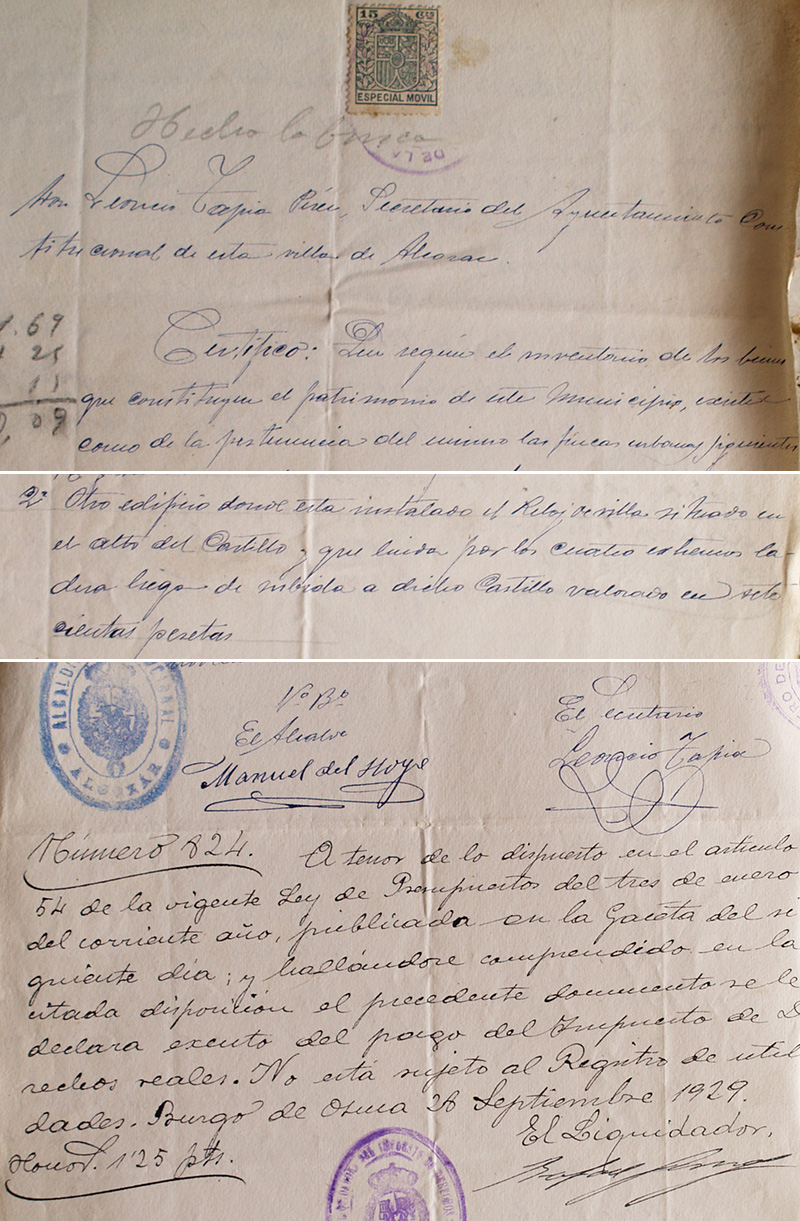 15 Cs
ESPECIAL MOVIL
Hecho la busca
Don Leoncio Tapia Pérez, Secretario del Ayuntamiento Cons-
titucional de esta villa de Alcozar.
.69
25
11
09
Certifico: Que según el inventario de los bienes
que constituyen el patrimonio de este Municipio, existe
como de la pertenencia del mismo las fincas urbanas siguientes
2ª Otro edificio donde esta instalado el Reloj de villa situado en
el alto del Castillo y que linda por los cuatro extremos la-
dera liega de subida a dicho Castillo valorado en sete
cientas pesetas
ALCALDI
ALCOZAR
Vº Bº
El Alcalde
Manuel del Hoyo
El Secretario
Leoncio Tapia
Número 824. A tenor de lo dispuesto en el articulo
54 de la vigente Ley de Presupuestos del tres de enero
del corriente año, publicada en la Gaceta del si
guiente día; y hallándose comprendido en la
citada disposición el precedente documento se le
declara exento del pago del Impuesto de D
rechos reales. No está sujeto al Registro de utili
dades. Burgo de Osma 28 Septiembre 1929.
El Liquidador,
Honor. 1'25 pts.